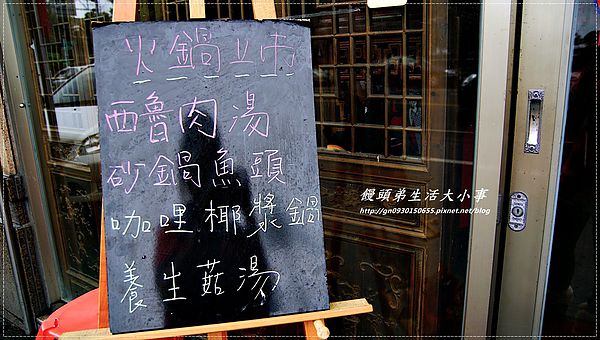 火鍋上市
西魯肉湯
砂鍋魚頭
咖哩椰漿鍋
養生菇湯
饅頭弟生活大小事
http://gn0930150655.pixnet.net/blog